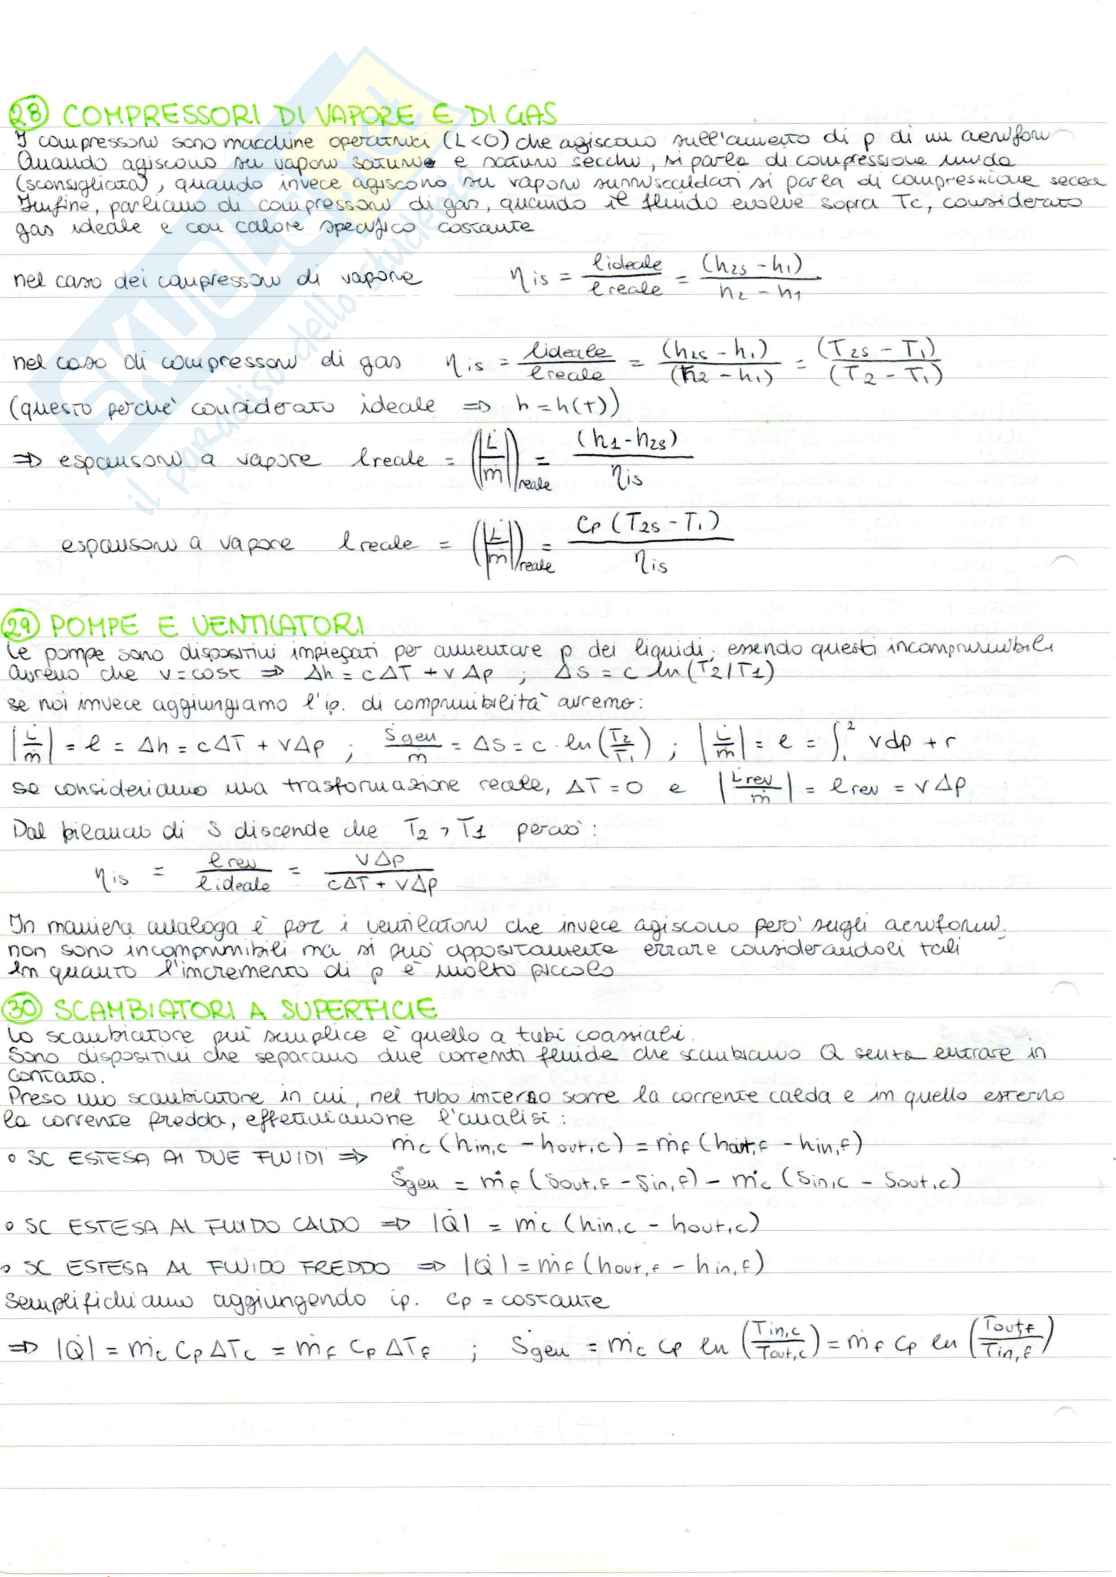 28 COMPRESSORI DI VAPORE E DI GAS
I compressori sono macchine operatrici (L<0) che agiscono sull'aumento di p di un aeriform
Quando agiscono su vapori saturi e saturi secchi, si parla di compressione umida
(sconsigliata), quando invece agiscono su vapori surriscaldati si parla di compressione secca
Infine, parliamo di compressori di gas, quando il fluido evolve sopra Tc, considerato
gas ideale e con calore specifico costante
nel caso dei compressori di vapore η is = l ideale / l reale = (h2s - h1) / h2 - h1
nel caso di compressori di gas η is = l ideale / l reale = (h2s - h1) / (h2 - h1) = (T2s - T1) / (T2 - T1)
(questo perché considerato ideale ⇒ h = h(T))
⇒ espansori a vapore l reale = (|L̇/ṁ|)reale = (h1 - h2s) / η is
espansori a vapore l reale = (|L̇/ṁ|)reale = Cp (T2s - T1) / η is
29 POMPE E VENTILATORI
Le pompe sono dispositivi impiegati per aumentare p dei liquidi; essendo questi incomprimibili
avremo che v = cost ⇒ Δh = cΔT + vΔp ; Δs = c ln(T2/T1)
se noi invece aggiungiamo l'ip. di comprimibilità avremo:
|L̇/ṁ| = l = Δh = cΔT + vΔp ; Ṡgen/ṁ = Δs = c · ln(T2/T1) ; |L̇/ṁ| = l = ∫₁² vdp + r
se consideriamo una trasformazione reale, ΔT = 0 e |L̇rev/ṁ| = l rev = vΔp
Dal bilancio di S discende che T2 > T1 perciò:
η is = l rev / l ideale = vΔp / cΔT + vΔp
In maniera analoga è per i ventilatori che invece agiscono però sugli aeriformi.
non sono incomprimibili ma si può appositamente errare considerandoli tali
in quanto l'incremento di p è molto piccolo
30 SCAMBIATORI A SUPERFICIE
Lo scambiatore più semplice è quello a tubi coassiali.
Sono dispositivi che separano due correnti fluide che scambiano Q senza entrare in
contatto.
Preso uno scambiatore in cui, nel tubo interno scorre la corrente calda e in quello esterno
la corrente fredda, effettuiamone l'analisi:
• SC ESTESA AI DUE FLUIDI ⇒ ṁc (hin,c - hout,c) = ṁf (hout,f - hin,f)
Ṡgen = ṁf (sout,f - sin,f) - ṁc (sin,c - sout,c)
• SC ESTESA AL FLUIDO CALDO ⇒ |Q̇| = ṁc (hin,c - hout,c)
• SC ESTESA AL FLUIDO FREDDO ⇒ |Q̇| = ṁf (hout,f - hin,f)
Semplifichiamo aggiungendo ip. cp = costante
⇒ |Q̇| = ṁc Cp ΔTc = ṁf Cp ΔTf ; Ṡgen = ṁc cp ln (Tin,c/Tout,c) = ṁf cp ln (Tout,f/Tin,f)
SKUOLA.net
il paradiso dello studente